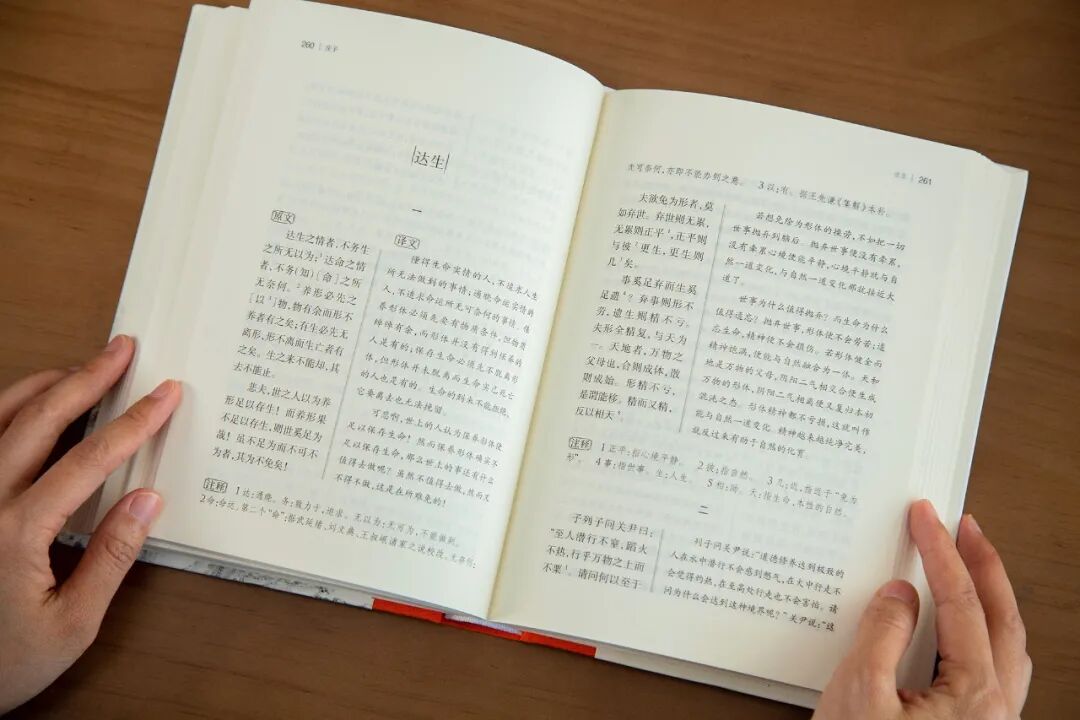 260 | 庄子
达生
一
原文
达生之情者，不务生
之所无以为；¹达命之情
者，不务〔知〕〔命〕之所
无奈何。²养形必先之
［以³］物，物有余而形不
养者有之矣；有生必先无
离形，形不离而生亡者有
之矣。生之来不能却，其
去不能止。
悲夫，世之人以为养
形足以存生！而养形果
不足以存生，则世奚足为
哉！虽不足为而不可不
为者，其为不免矣！
译文
懂得生命实情的人，不追求人生
所无法做到的事情；通晓命运实情的
人，不追求命运所无可奈何的事情。保
养形体必须先要有物质条件，但物资
绰绰有余，而形体并没有得到保养的
人是有的；保存生命必须先不脱离形
体，但形体并未脱离而生命实已死亡
的人也是有的。生命的到来不能推却，
它要离去也无法挽留。
可悲啊，世上的人认为保养形体便
足以保存生命！然而保养形体确实不
足以保存生命，那么世上的事还有什么
值得去做呢？虽然不值得去做，然而又
不得不做，这是在所难免的！
注释
1 达：通晓。务：致力于，追求。无以为：无可为，不能做到。
2 命：命运。第二个“命”：据武延绪、刘文典、王叔岷诸家之说校改。
261
无可奈何，亦即不能办到之意。 3 以：有。据王先谦《集解》本补。
夫欲免为形者，莫
如弃世。弃世则无累，
无累则正平¹，正平则
与彼²更生，更生则
几³矣。
事奚足弃而生奚
足遗⁴？弃事则形不
劳，遗生则精不亏。
夫形全精复，与天为
一。天地者，万物之
父母也，合则成体，散
则成始。形精不亏，
是谓能移。精而又精，
反以相天⁵。
若想免除为形体的操劳，不如把一切
世事抛弃到脑后。抛弃世事便没有牵累，
没有牵累心境便能平静，心境平静就与自
然一道变化，与自然一道变化那就接近大
道了。
世事为什么值得抛弃？而生命为什么
值得遗忘？抛弃世事，形体便不会劳苦；遗
忘生命，精神便不会损伤。若形体健全而
精神饱满，便能与自然融合为一体。天和
地是万物的父母，阴阳二气相交合便生成
万物的形体，阴阳二气相离便又复归本初
混沌之态。形体精神都不亏损，这就叫作
能与自然一道变化。精神越来越纯净完美，
就反过来有助于自然的化育。
注释
1 正平：指心境平静。 2 彼：指自然。 3 几：近，指近于“免为
形”。 4 事：指世事。生：人生。 5 相：助。天：指生命、本性的自然。
二
子列子问关尹曰：
“至人潜行不窒，蹈火
不热，行乎万物之上而
不栗¹。请问何以至于
列子问关尹说：“道德修养达到极致的
人在水中潜行不会感到憋气，在火中行走不
会觉得灼热，在至高处行走也不会害怕。请
问为什么会达到这种境界呢？”关尹说：“这